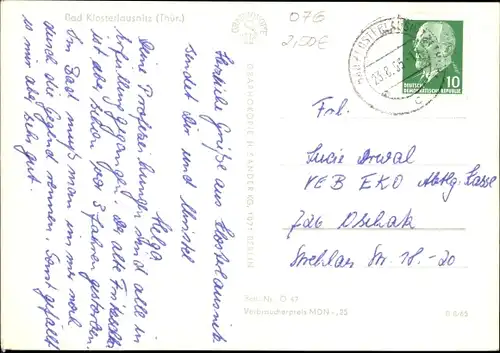 Bad Klosterlausnitz (Thür.)
076
2,50€
Herzliche Grüße aus Klosterlausnitz
sendet Dir und Christel
Helga
Deine Prophezeihungen sind alle in
Erfüllung gegangen. Der alte
ist aber schon vor 3 Jahren gestorben.
Im Bad muß man immer noch
durch die Gegend rennen. Sonst gefällt
es mir aber sehr gut.
GRAPHOKOPIE H. SANDER KG, 1071 BERLIN
23.8.65
10
DEUTSCHE
DEMOKRATISCHE REPUBLIK
Frl.
Lucie
VEB EKO Abtlg. Kasse
726 Oschatz
Strehlaer Str. 18-20
Best.-Nr. O 43
Verbraucherpreis MDN -,25